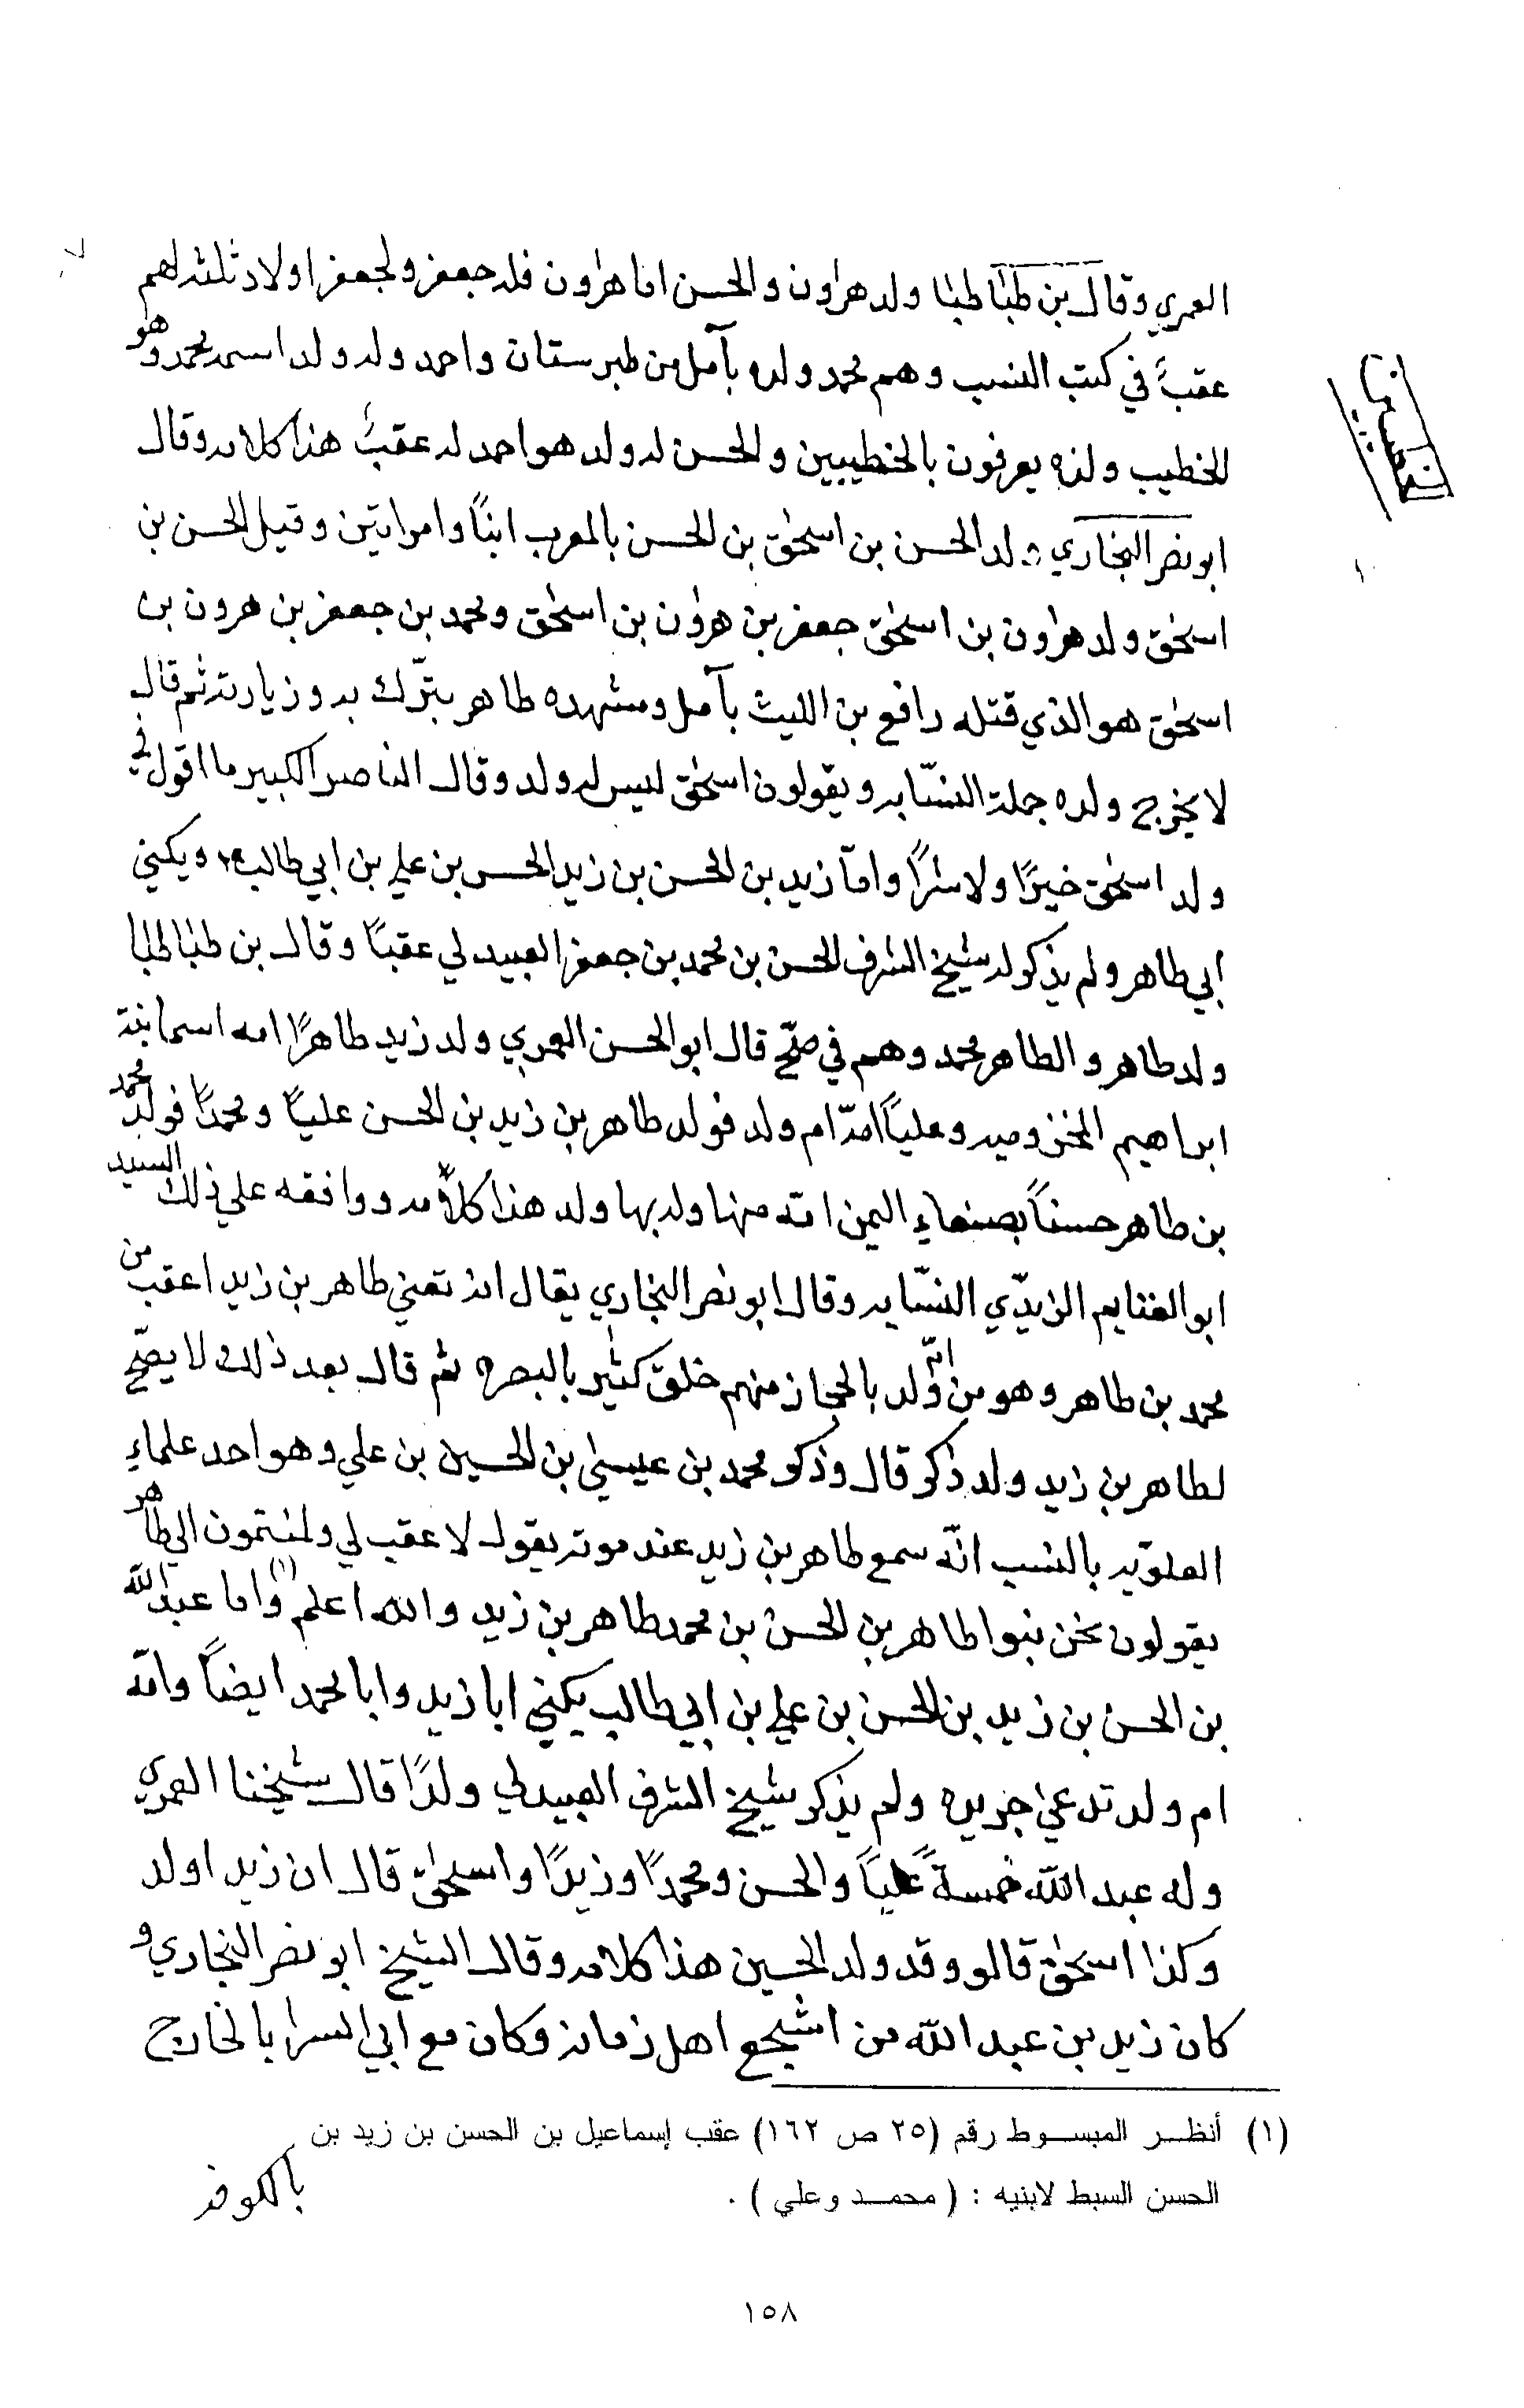 العمري وقال بن طباطبا ولد هرون والحسن اما هرون فله جعفر ولجعفر اولاد ثلثه لهم
عقبًا في كتب النسب وهم محمد ولده بآمل من طبرستان واحمد وله ولد اسمه محمد وهو
الخطيب ولده يعرفون بالخطيبين والحسن له ولد هو احمد له عقبٌ هذا كلامه وقال
ابو نصر البخاري ولد الحسن بن اسحٰق بن الحسن بالمغرب ابنًا وامراتين وقيل الحسن بن
اسحٰق ولد هرون بن اسحٰق جعفر بن هرون بن اسحٰق ومحمد بن جعفر بن هرون بن
اسحٰق هو الذي قتله رافع بن الليث بآمل ومشهده ظاهر يتبرّك به وزيارته ثم قال
لا يخرج ولده جملة النسّابه ويقولون اسحٰق ليس له ولد وقال الناصر الكبير ما اقول في
ولد اسحٰق خيرًا ولا شرًا وامّا زيد بن الحسن بن زيد الحسن بن علي بن ابي طالب ويكني
ابي طاهر ولم يذكر له شيخ الشرف الحسن بن محمد بن جعفر العبيدلي عقبًا وقال بن طباطبا
ولد طاهر والطاهر محمد وهم في صحّ قال ابو الحسن العمري ولد زيد طاهرًا امه اسما ابنة
ابراهيم المخزوميه وعليًا امّه ام ولد فولد طاهر بن زيد بن الحسن عليًا ومحمدًا فولد محمد
بن طاهر حسنًا بصنعاء اليمن امّه منها ولد بها ولد هذا كلامه ووافقه على ذلك السيد
ابو الغنايم الزيدّي النسّابه وقال ابو نصر البخاري يقال انه تعني طاهر بن زيد اعقب من
محمد بن طاهر وهو من امّ ولد بالحجاز منهم خلق كثير بالبصره ثم قال بعد ذلك لا يصحّ
لطاهر بن زيد ولد ذكر قال وذكر محمد بن عيسىٰ بن الحسين بن علي وهو احد علماء
العلويّه بالنسب انّه سمع طاهر بن زيد عند موته يقول لا عقب لي ولمنتمون الي طاهر
يقولون نحن بنوا طاهر بن الحسن بن محمد طاهر بن زيد والله اعلم (١) واما عبد الله
بن الحسن بن زيد بن الحسن بن علي بن ابي طالب يكني ابا زيد وابا محمد ايضًا وامّه
ام ولد تدعىٰ جريده ولم يذكر شيخ الشرف العبيدلي ولدًا قال شيخنا العمري
وله عبد الله خمسةً عليًا والحسن ومحمدًا وزيدًا واسحٰق قال ان زيد اولد
وكذا اسحٰق قالو وقد ولد الحسين هذا كلامه وقال الشيخ ابو نصر البخاري و
كان زيد بن عبد الله من اشجع اهل زمانه وكان مع ابي السرايا الخارج
(١) أنظـــر المبســـوط رقم (٢٥ ص ١٦٢) عقب إسماعيل بن الحسن بن زيد بن
الحسن السبط لابنيه : ( محمـــد وعلي ) .
بالكوفه
١٥٨